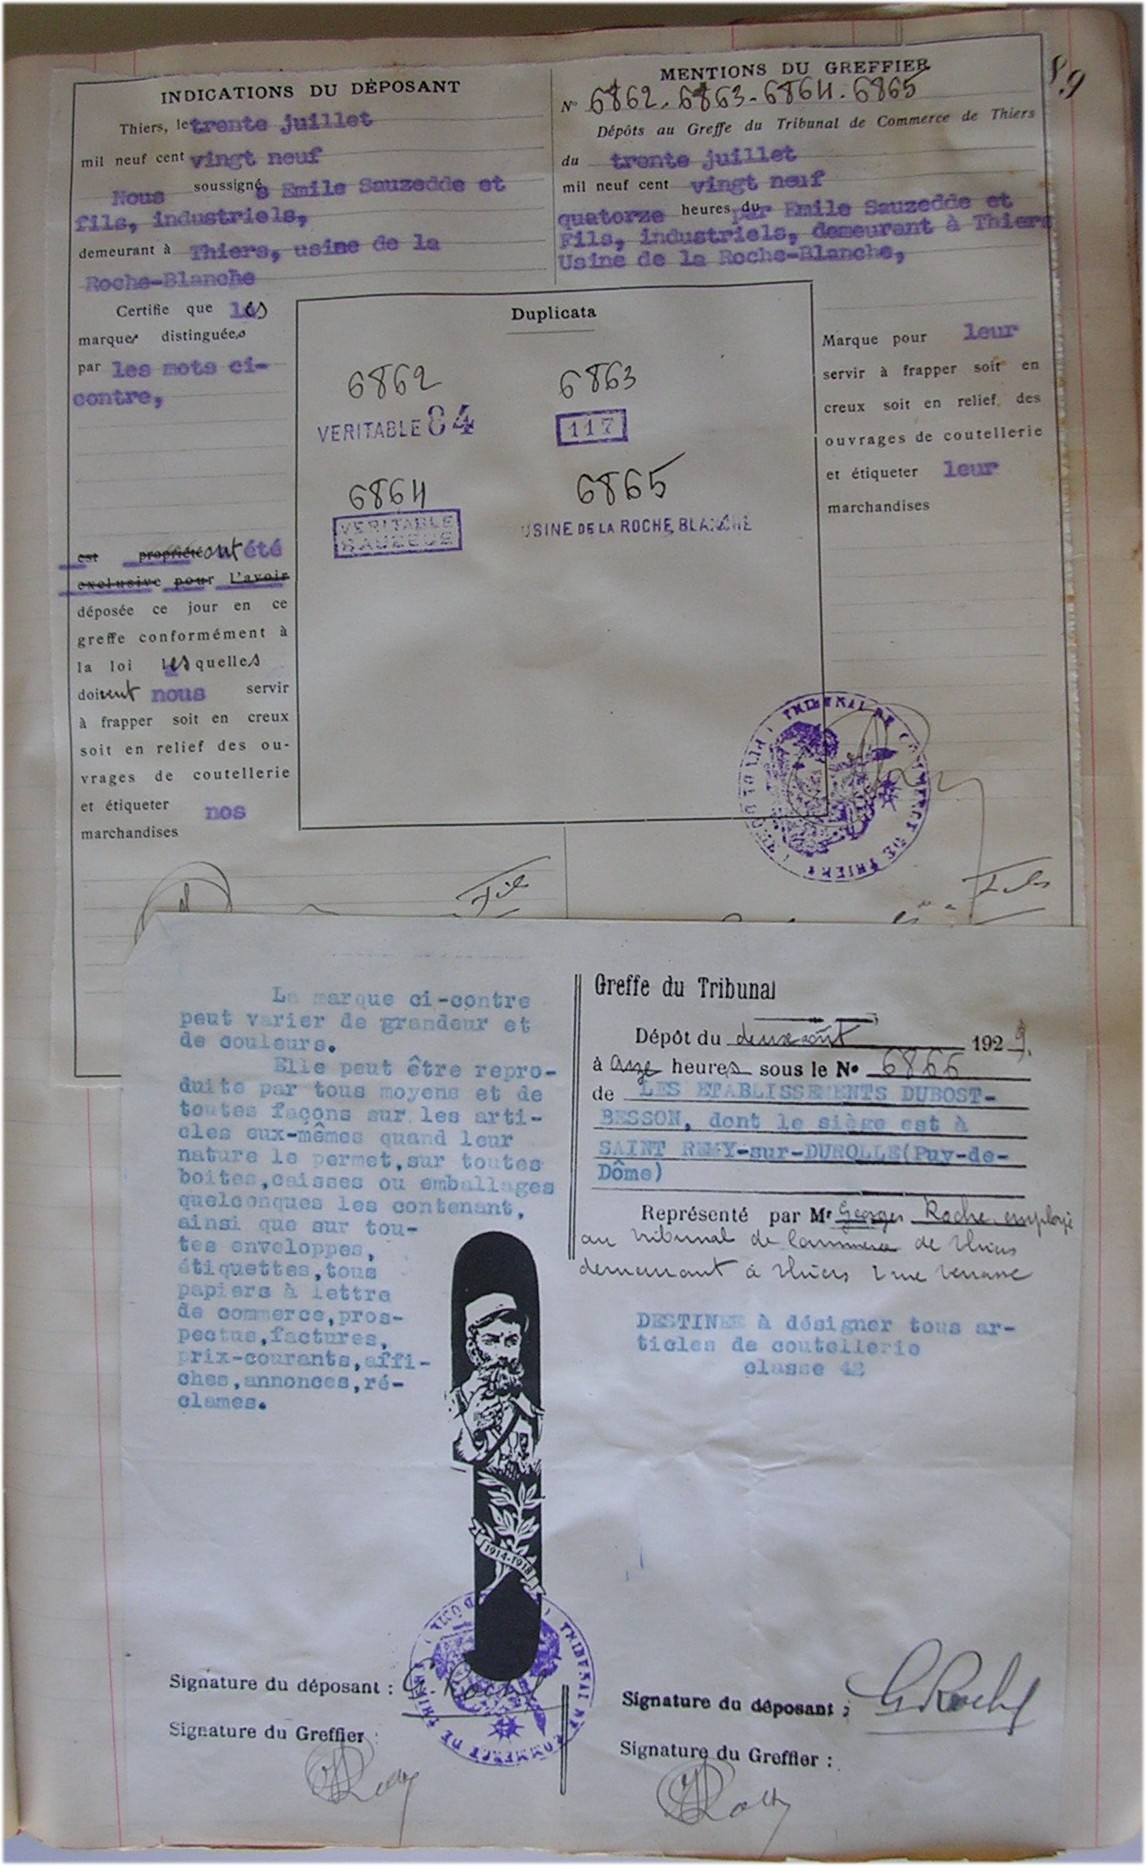 89
INDICATIONS DU DÉPOSANT
Thiers, le trente juillet
mil neuf cent vingt neuf
Nous soussignés Emile Sauzedde et
fils, industriels,
demeurant à Thiers, usine de la
Roche-Blanche
Certifie que les
marques distinguées
par les mots ci-
contre,
est propriété ont été
exclusive pour l'avoir
déposée ce jour en ce
greffe conformément à
la loi lesquelles
doivent nous servir
à frapper soit en creux
soit en relief des ou-
vrages de coutellerie
et étiqueter nos
marchandises
Fils
MENTIONS DU GREFFIER
N° 6862. 6863. 6864. 6865
Dépôts au Greffe du Tribunal de Commerce de Thiers
du trente juillet
mil neuf cent vingt neuf
quatorze heures du par Emile Sauzedde et
Fils, industriels, demeurant à Thiers
Usine de la Roche-Blanche,
Duplicata
6862
VERITABLE 84
6863
117
6864
VERITABLE
6865
USINE DE LA ROCHE BLANCHE
Marque pour leur
servir à frapper soit en
creux soit en relief des
ouvrages de coutellerie
et étiqueter leur
marchandises
TRIBUNAL DE COMMERCE DE THIERS
Fils
La marque ci-contre
peut varier de grandeur et
de couleurs.
Elle peut être repro-
duite par tous moyens et de
toutes façons sur les arti-
cles eux-mêmes quand leur
nature le permet,sur toutes
boites,caisses ou emballages
quelconques les contenant,
ainsi que sur tou-
tes enveloppes,
étiquettes,tous
papiers à lettre
de commerce,pros-
pectus,factures,
prix-courants,affi-
ches,annonces,ré-
clames.
1914-1918
TRIBUNAL DE COMMERCE DE THIERS
Signature du déposant : G. Roche
Signature du Greffier :
Greffe du Tribunal
Dépôt du deux août 1929.
à onze heures sous le N° 6866
de LES ETABLISSEMENTS DUBOST-
BESSON, dont le siège est à
SAINT REMY-sur-DUROLLE(Puy-de-
Dôme)
Représenté par Mr Georges Roche employé
au tribunal de Commerce de Thiers
demeurant à Thiers rue
DESTINEE à désigner tous ar-
ticles de coutellerie
classe 42
Signature du déposant : G Roche
Signature du Greffier :